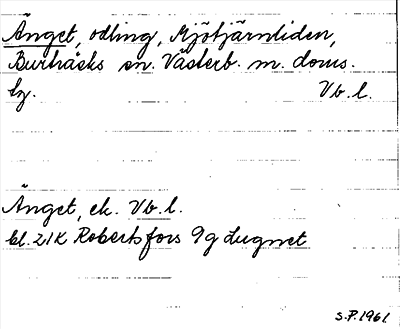 Änget, odling, Mjötjärnliden,
Burträsks sn. Västerb. m. doms.
Vb. l.
Änget, ek. Vb. l.
bl. 21K Robertsfors 9g Lugnet
S.P. 1961